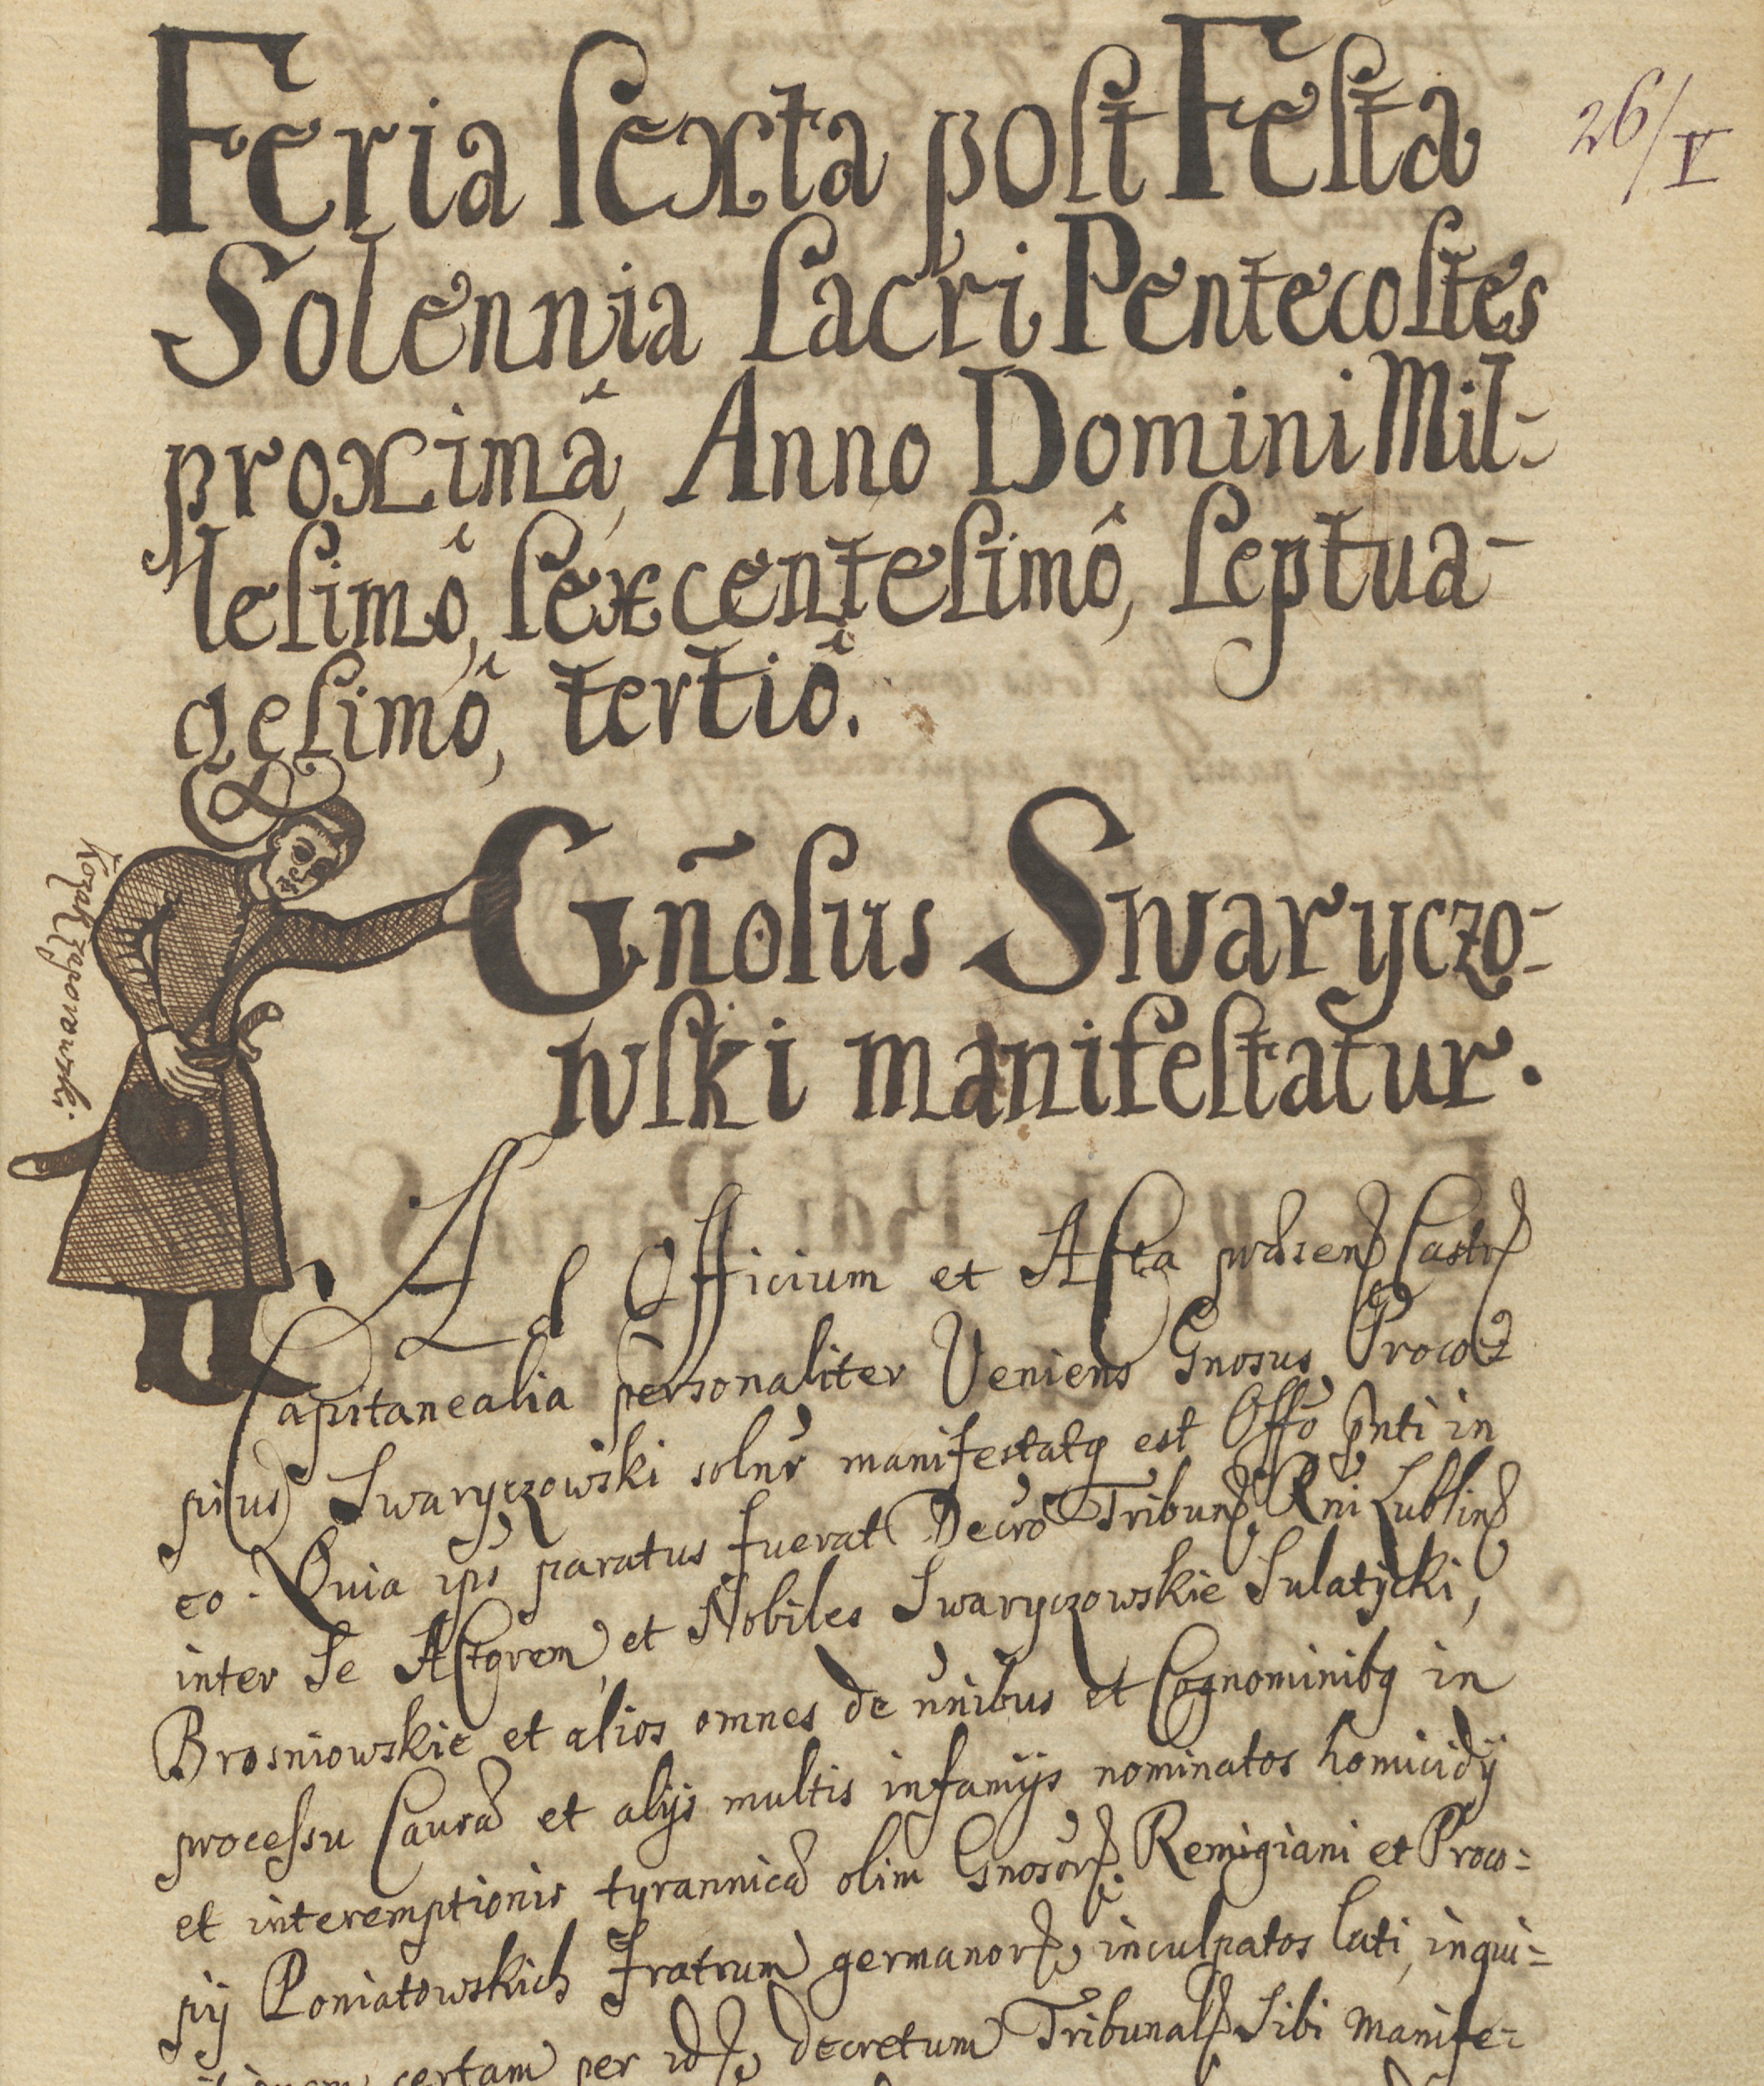 Feria sexta post Festa
26/V
Solennia sacri Pentecostes
proximâ, Anno Domini Mil-
lesimô, sexcentesimô, septua-
gesimô, tertiô.
Gñosus Swaryczo-
wski manifestatur.
Kozak Zaporowski.
Ad Officium et Acta præsen Castr
Capitanealia personaliter Veniens Gnosus Proco
pius Swaryczowski solnr manifestatq est Offo pnti in
eo. Quia ips paratus fuerat Decro Tribun Rni Lublin
inter Se Actorem, et Nobiles Swaryczowskie Sulatycki,
Brosniowskie et alios omnes de nnibus et Cognominibq in
processu Causæ et alijs multis infamijs nominatos homicidij
et interemptionis tyrannicæ olim Gnosor. Remigiani et Proco-
pij Poniatowskich Fratrum germanor, inculpatos lati, inqui-
certam per id decretum Tribunal Sibi manife-